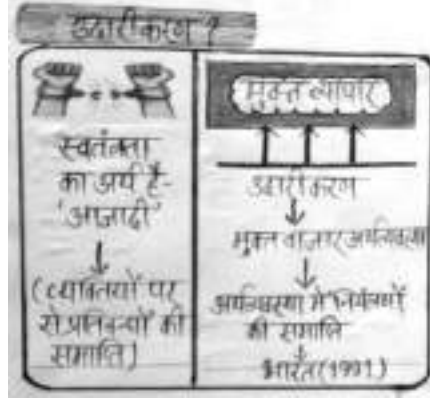 उदारीकरण ?
स्वतंत्रता
का अर्थ है-
'आजादी'
↓
(व्यक्तियों पर
से प्रतिबन्धों की
समाप्ति)
मुक्त व्यापार
उदारीकरण
↓
मुक्त बाजार अर्थव्यवस्था
↓
अर्थव्यवस्था में नियंत्रणों
की समाप्ति
भारत (1991)